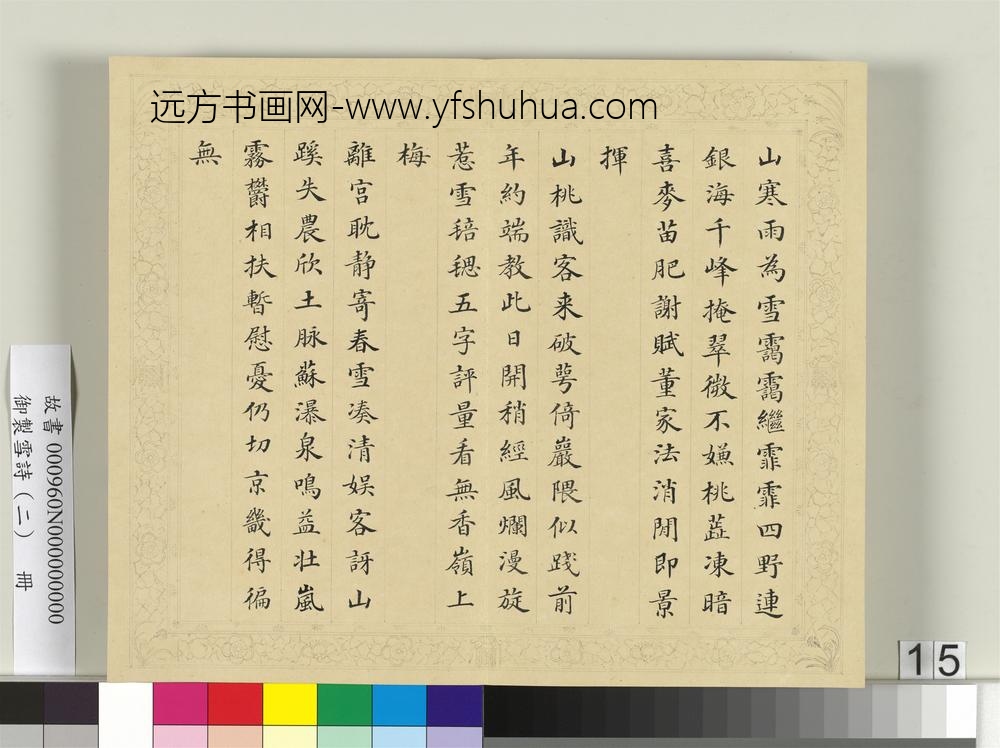 远方书画网-www.yfshuhua.com
山寒雨為雪靄靄繼霏霏四野連
銀海千峰掩翠微不嫌桃蕋凍暗
喜麥苗肥謝賦董家法消閒即景
揮
山桃識客来破萼倚巖隈似踐前
年約端教此日開稍經風爛漫旋
惹雪毰毸五字評量看無香嶺上
梅
離宮耽静寄春雪凑清娱客訝山
蹊失農欣土脉蘇瀑泉鳴益壮嵐
霧欝相扶暫慰憂仍切京畿得徧
無
故書 000960N000000000
御製雪詩(二) 冊
15